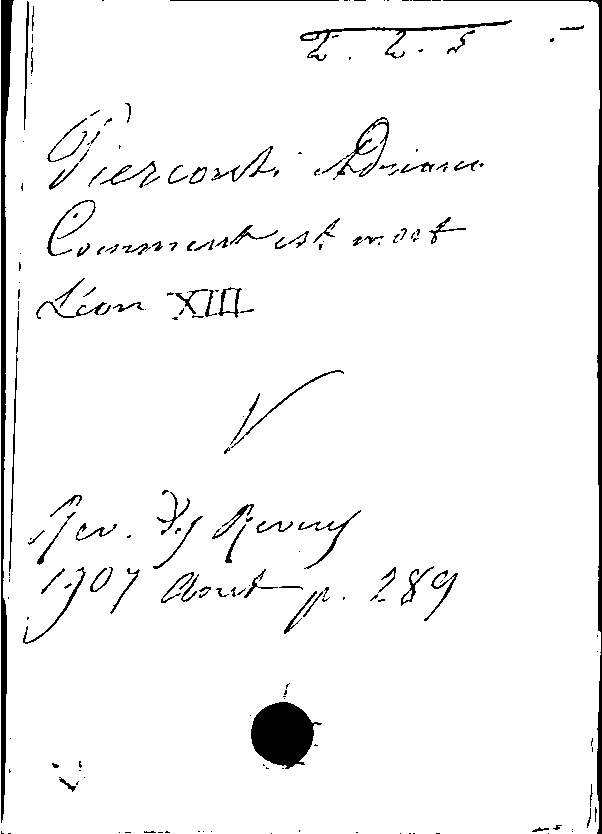 2. 2. 5
Pierconti Adriano
Comment est mort
Léon XIII
Rev. des Revues
1907 Aout p. 289